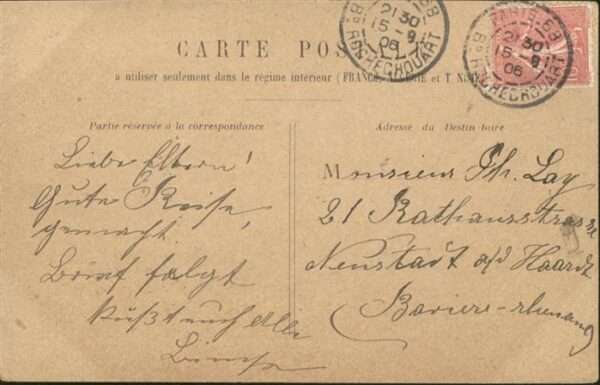 CARTE POSTALE
à utiliser seulement dans le régime intérieur (FRANCE, ALGÉRIE et TUNISIE)
PARIS-68
21 30
15 -9
06
Bd ROCHECHOUART
PARIS-68
21 30
15 -9
06
Bd ROCHECHOUART
Partie réservée à la correspondance
Liebe Eltern!
Gute Reise
gemacht.
Brief folgt
Küßt euch Alle
Adresse du Destinataire
Monsieur Ph. Lay
21 Rathausstrasse
Neustadt a/d Haardt
Baviere-rhenane